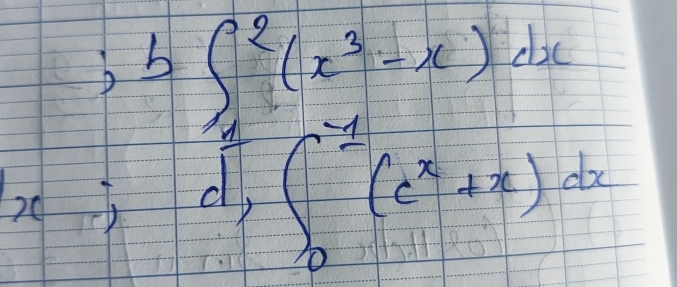 ; b ∫₁² (x³ - x) dx
dx ; d, ∫₀⁻¹ (eˣ + x) dx